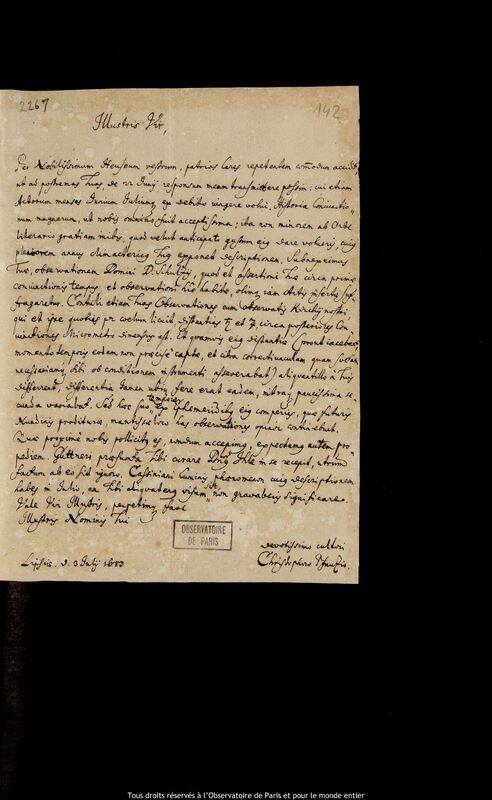 2267
142
Illustris Vir,
Per Nobilissimum Heuseum vestrum, patrios lares repetentem commodum accidit,
ut ad postremas Tuas de 22 Junij responsum meum transmittere possim; cui etiam
Actorum menses Junium Julium, ex debito jungere volui. Historia Conjunctio=
num magnarum, ut nobis omnino fuit acceptissima; ita non minorem ab Orbe
literario gratiam inibis, quod velut anticipato gustum ejus dare volueris, cujus
pleniorem annus climactericus Tuus exponet descriptionem. Subnexuimus
Tuae, observationem Domini D. Schultzij, quod et assertioni Tuae circa primae
conjunctionis tempus et observationi suffragaretur. Contuli etiam Tuas Observationes cum observatis Kirchij nostri,
qui et ipse quoties per coelum licuit distantias ♄ et ♃ circa posteriores Con
junctiones Micrometro dimensus est. Et quamvis ejus distantiae (prout
momento temporis eodem non praecise captae, et citra correctiunculam quam
necessariam sibi ob conditionem instrumenti asseverabat) aliquantillo a Tuis
different, differentia tamen ubivis fere erat eadem, nec nisi paucissima se=
cunda variabat. Sed hoc suo tempore, ex Ephemeridibus ejus comperies, quae futuris
Nundinis proditurae, mantissae loco has observationes quoque continebunt.
Quae proxime nobis pollicitus es, nondum accepimus, expectamus autem pro
pediem. Güttneri praesumta Tibi curare Dnus ille in se recepit, utrum
factum ab eo sit ignoro. Cassiniani Luminis phaenomenon cujus descriptionem
habes in Julio, an Tibi aliquatenus visum sit, non gravaberis significare.
Vale Vir Illustris, perpetim, fave
Illustris Nominis Tui
OBSERVATOIRE
DE PARIS
devotissimo cultori
Lipsiae. d. 3 Julij 1683
Christophoro Pfautzio.
Tous droits réservés à l'Observatoire de Paris et pour le monde entier